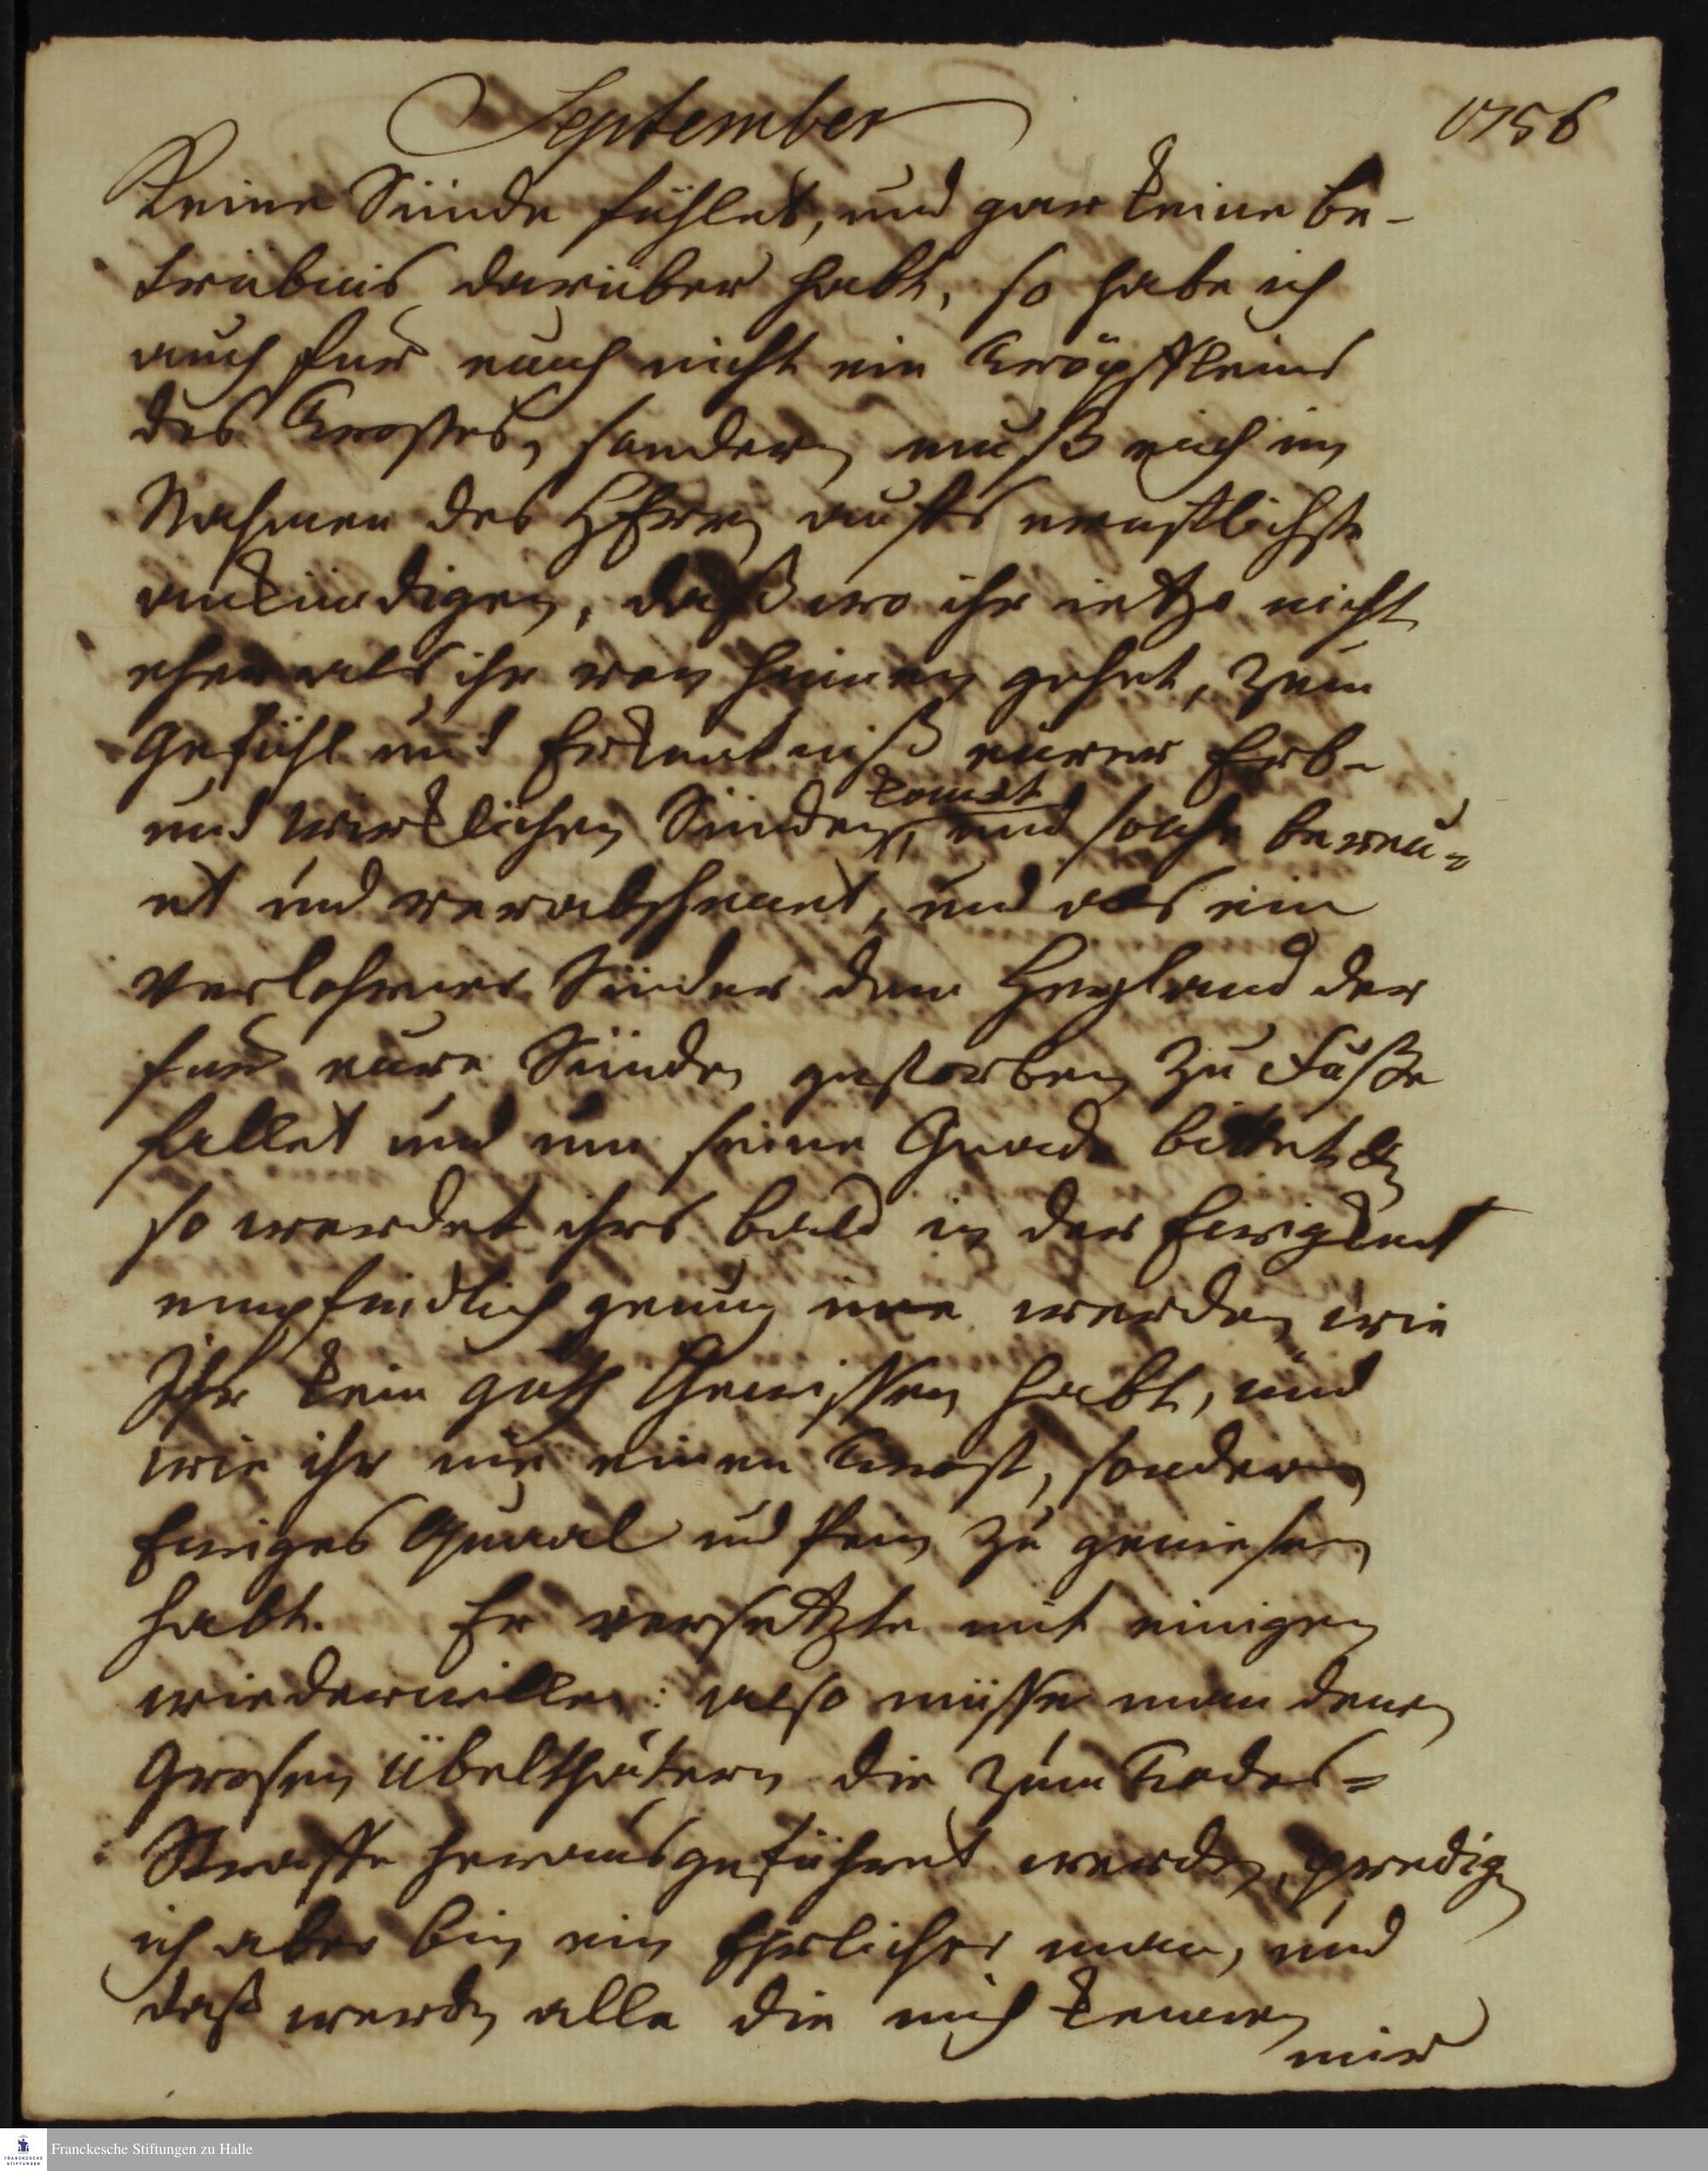 September 1756
keine Sünde fühlet, und gar keine be-
trübnis darüber habt, so habe ich
auch für euch nicht ein Tröpflein
des Trostes, sondern muß euch im
Nahmen des HErrn aufs ernstlichste
ankündigen, daß wo ihr ietzo nicht
eher als ihr von hinnen gehet, zum
Gefühl und Erkentniß eürer Erb-
komt
und wirklichen Sünden, und solche bereu-
et und verabscheuet, und als ein
verlohrner Sünder dem Heyland der
für eure Sünden gestorben zu Fuße
fallet und um seine Gnade bittet
so werdet ihrs bald in der Ewigkeit
empfindlich genug inne werden, wie
Ihr kein guth Gewissen habt, und
wie ihr nie einen Trost, sondern
Ewiges Quaal und Pein zu geniesen
habt. Er versetzte mit einigen
wiederwillen: also müsse man denen
Grosen übelthätern die zum Todes-
Straffe herausgeführet werden, predigen
ich aber bin ein Ehrlicher man, und
daß werden alle die mich kennen
mir
Franckesche Stiftungen zu Halle